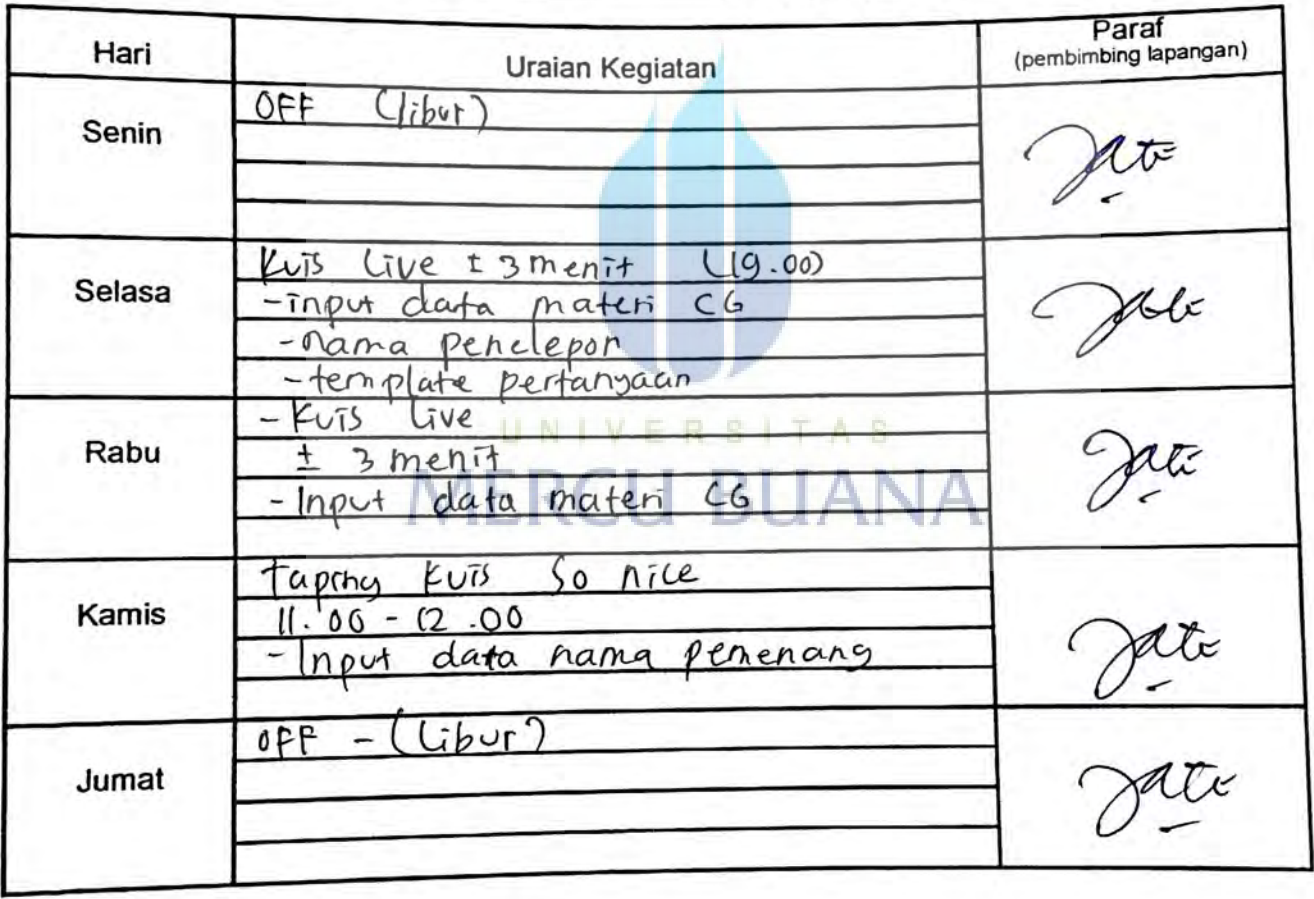 Hari Uraian Kegiatan Paraf
(pembimbing lapangan)
Senin
OFF (libur)
Selasa
Kuis Live ± 3 menit (19.00)
- input data materi CG
- nama penelepon
- template pertanyaan
Rabu
- Kuis Live
± 3 menit
- Input data materi CG
UNIVERSITAS
MERCU BUANA
Kamis
Taping Kuis So nice
11.00 - 12.00
- Input data nama pemenang
Jumat
OFF - (Libur)